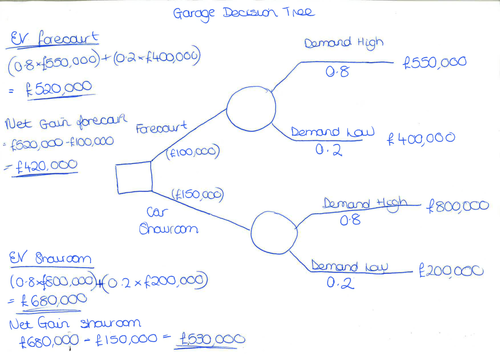 Garage Decision Tree
EV forecourt
(0.8 x £550,000) + (0.2 x £400,000)
= £520,000
Net Gain forecourt
= £520,000 - £100,000
= £420,000
Forecourt
(£100,000)
(£150,000)
Car
Showroom
Demand High
0.8
£550,000
Demand Low
0.2
£400,000
Demand High
0.8
£800,000
Demand Low
0.2
£200,000
EV Showroom
(0.8 x £800,000) + (0.2 x £200,000)
= £680,000
Net Gain showroom
£680,000 - £150,000 = £530,000